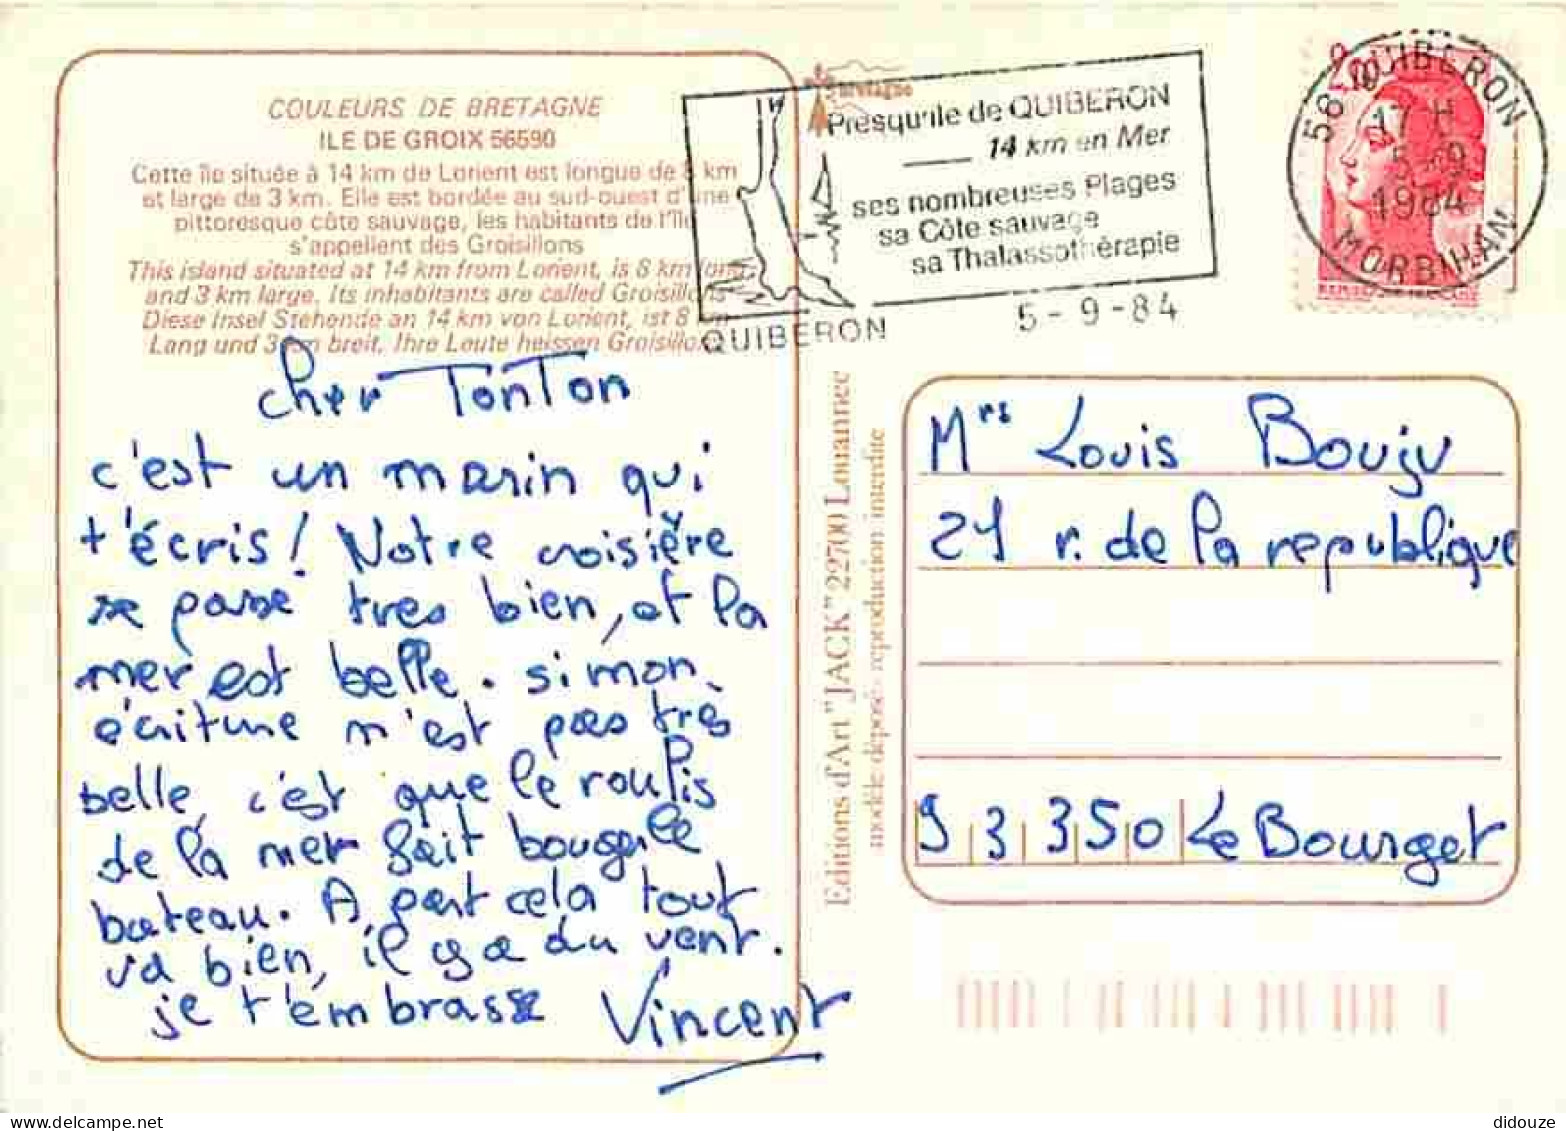 COULEURS DE BRETAGNE
ILE DE GROIX 56590
Cette île située à 14 km de Lorient est longue de 8 km
et large de 3 km. Elle est bordée au sud-ouest d'une
pittoresque côte sauvage, les habitants de l'île
s'appellent des Groisillons
This island situated at 14 km from Lorient, is 8 km long
and 3 km large. Its inhabitants are called Groisillons
Diese Insel Stehende an 14 km von Lorient, ist 8 km
Lang und 3 km breit. Ihre Leute heissen Groisillons
bretagne
Presqu'île de QUIBERON
14 km en Mer
ses nombreuses Plages
sa Côte sauvage
sa Thalassothérapie
QUIBERON
5-9-84
56 QUIBERON
17 H
5-9
1984
MORBIHAN
2,10
cher TonTon
c'est un marin qui
t'écris! Notre croisière
se passe très bien, et la
mer est belle. si mon
écriture n'est pas très
belle, c'est que le roulis
de la mer fait bouger le
bateau. A part cela tout
va bien, il y a du vent.
je t'embrasse Vincent
Editions d'Art "JACK" 22700 Louannec
modèle déposé - reproduction interdite
Mrs Louis Bouju
21 r. de la republique
93350 Le Bourget
didouze